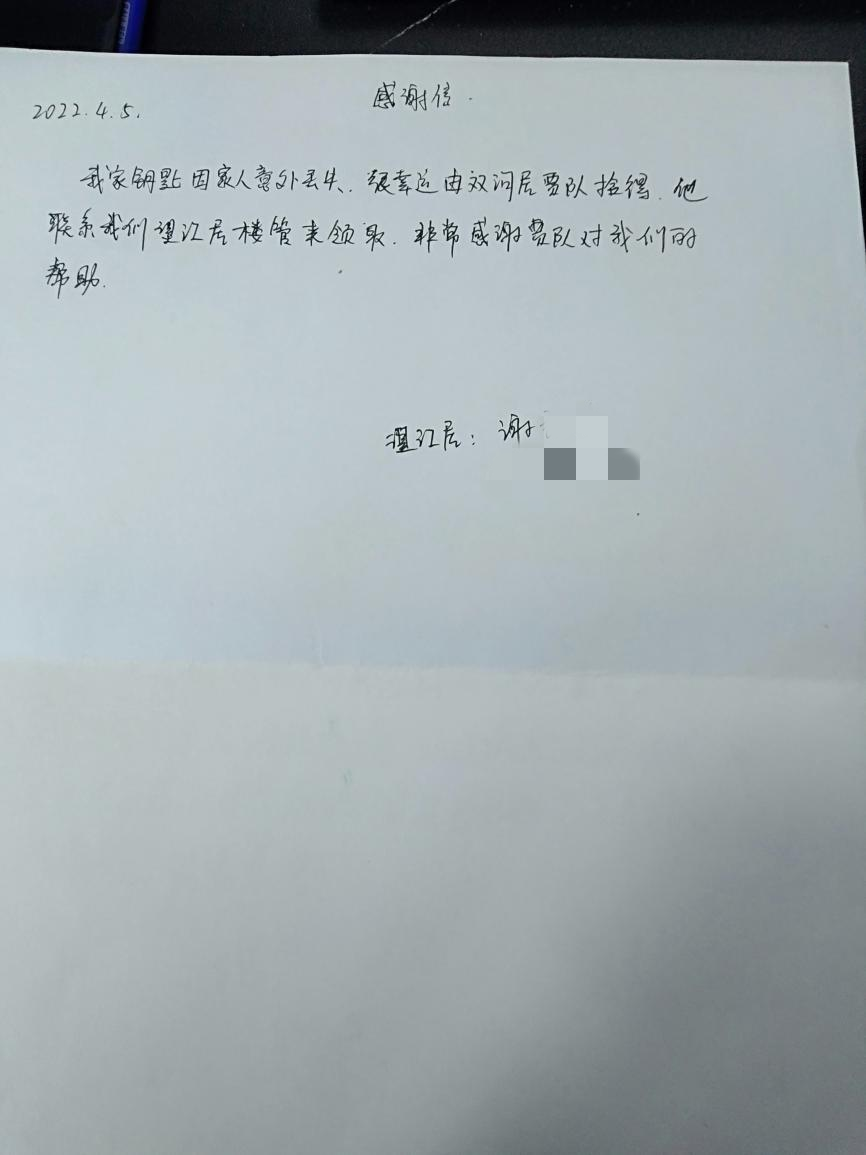 感谢信.
2022.4.5.
我家钥匙因家人意外丢失、很幸运由双河居贾队捡得.他
联系我们望江居楼管来领取.非常感谢贾队对我们的
帮助.
望江居：谢